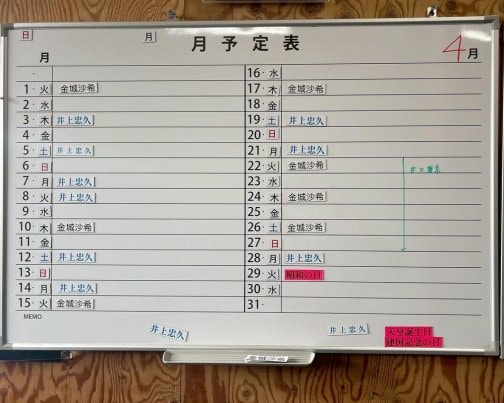 日
月
月予定表
4月
月
1・火 金城沙希
2・水
3・木 井上忠久
4・金
5・土 井上忠久
6・日
7・月 井上忠久
8・火 井上忠久
9・水
10・木 金城沙希
11・金
12・土 井上忠久
13・日
14・月 井上忠久
15・火 金城沙希
16・水
17・木 金城沙希
18・金
19・土 井上忠久
20・日
21・月 井上忠久
22・火 金城沙希
23・水
24・木 金城沙希
25・金
26・土 金城沙希
27・日
28・月 井上忠久
29・火 昭和の日
30・水
31・
井上
MEMO
井上忠久
井上忠久
天皇誕生日
建国記念の日
金城沙希